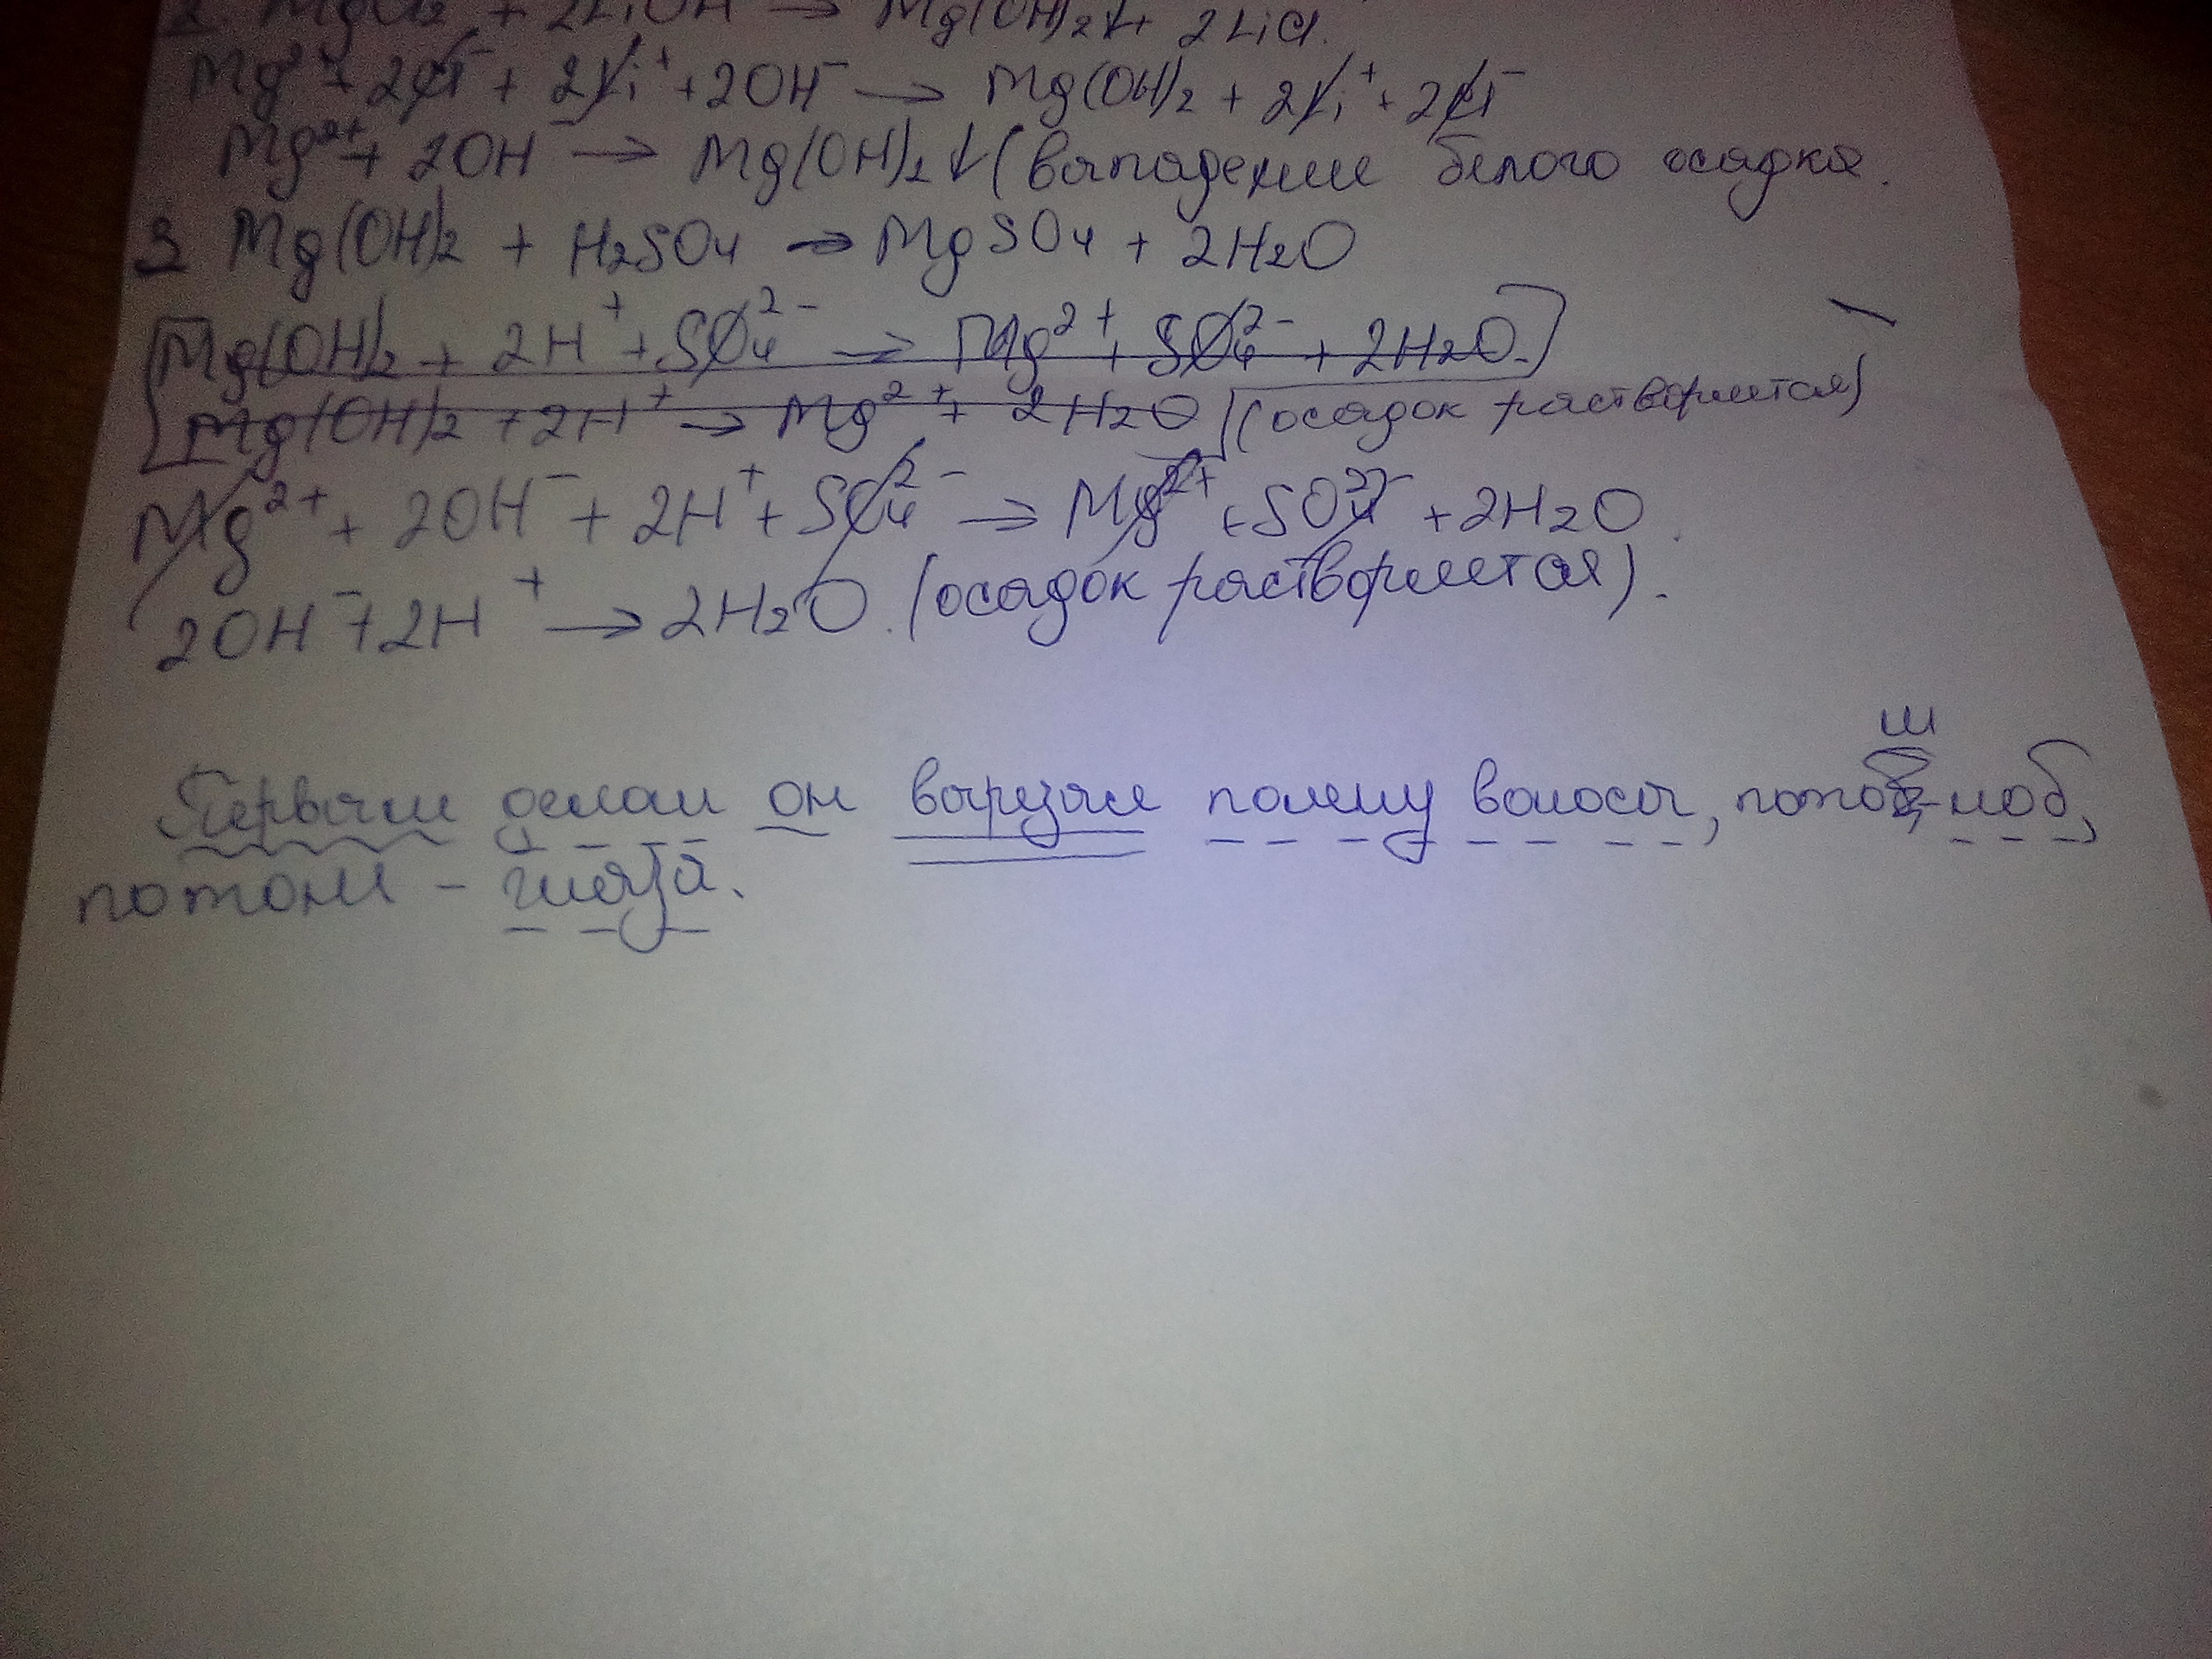 2 MgCl₂ + 2LiOH → Mg(OH)₂↓ + 2LiCl.
Mg²⁺ + 2Cl⁻ + 2Li⁺ + 2OH⁻ → Mg(OH)₂ + 2Li⁺ + 2Cl⁻
Mg²⁺ + 2OH⁻ → Mg(OH)₂↓ (выпадение белого осадка.
3 Mg(OH)₂ + H₂SO₄ → MgSO₄ + 2H₂O
[Mg(OH)₂ + 2H⁺ + SO₄²⁻ → Mg²⁺ + SO₄²⁻ + 2H₂O.
Mg(OH)₂ + 2H⁺ → Mg²⁺ + 2H₂O] (осадок растворяется)
Mg²⁺ + 2OH⁻ + 2H⁺ + SO₄²⁻ → Mg²⁺ + SO₄²⁻ + 2H₂O.
2OH⁻ + 2H⁺ → 2H₂O. (осадок растворяется).
Первым делом он вырезал полену волосы, потом - лоб,
потом - глаза.